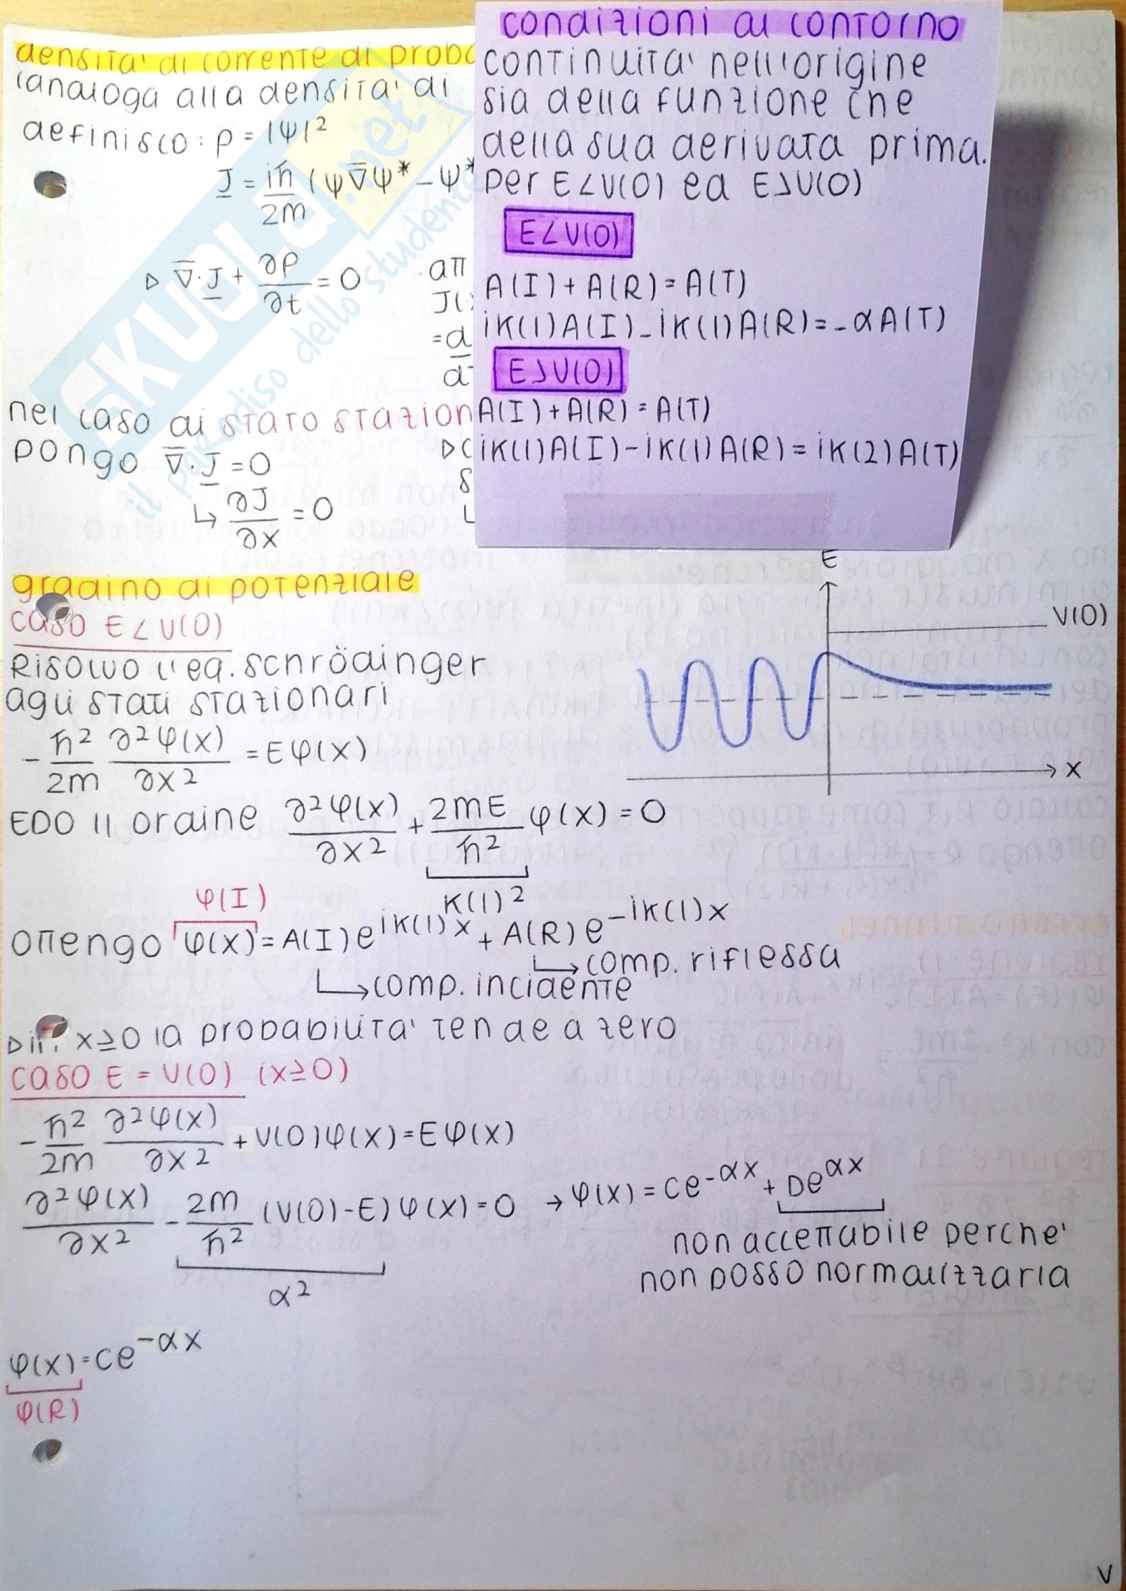 densita' di corrente di proba
(analoga alla densita' di
definisco: ρ = |ψ|²
J = iħ/2m (ψ∇̄ψ* - ψ*
▷ ∇̄·J + ∂ρ/∂t = 0
J(
=d
nel caso di stato stazion
pongo ∇̄·J = 0
↳ ∂J/∂x = 0
condizioni al contorno
continuita' nell'origine
sia della funzione che
della sua derivata prima.
per E<V(0) ed E>V(0)
E<V(0)
A(I) + A(R) = A(T)
ik(1)A(I) - ik(1)A(R) = -αA(T)
E>V(0)
A(I) + A(R) = A(T)
ik(1)A(I) - ik(1)A(R) = ik(2)A(T)
gradino di potenziale
caso E < V(0)
Risolvo l'eq. schrödinger
agli stati stazionari
-ħ²/2m ∂²φ(x)/∂x² = Eφ(x)
E
V(0)
x
EDO II ordine ∂²φ(x)/∂x² + 2mE/ħ² φ(x) = 0
k(1)²
φ(I)
ottengo φ(x) = A(I)e^ik(1)x + A(R)e^-ik(1)x
comp. riflessa
comp. incidente
x≥0 la probabilita' tende a zero
caso E = V(0) (x≥0)
-ħ²/2m ∂²φ(x)/∂x² + V(0)φ(x) = Eφ(x)
∂²φ(x)/∂x² - 2m/ħ² (V(0)-E)φ(x) = 0 → φ(x) = ce^-αx + De^αx
α²
non accettabile perche'
non posso normalizzarla
φ(x) = ce^-αx
φ(R)
V
SKUOLA.net
il paradiso dello studente